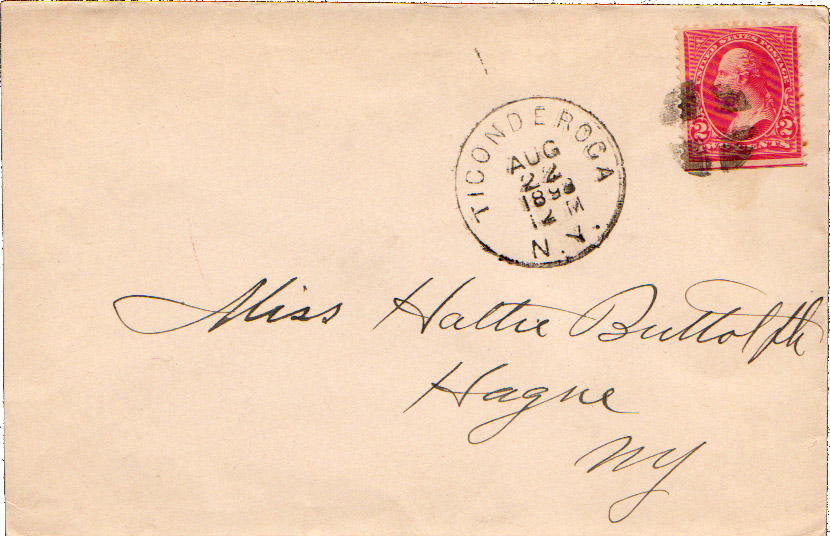 UNITED STATES POSTAGE
2 2
TWO CENTS
TICONDEROGA
AUG
22
1898
12 M
N.Y.
Miss Hattie Buttolph
Hague
NY